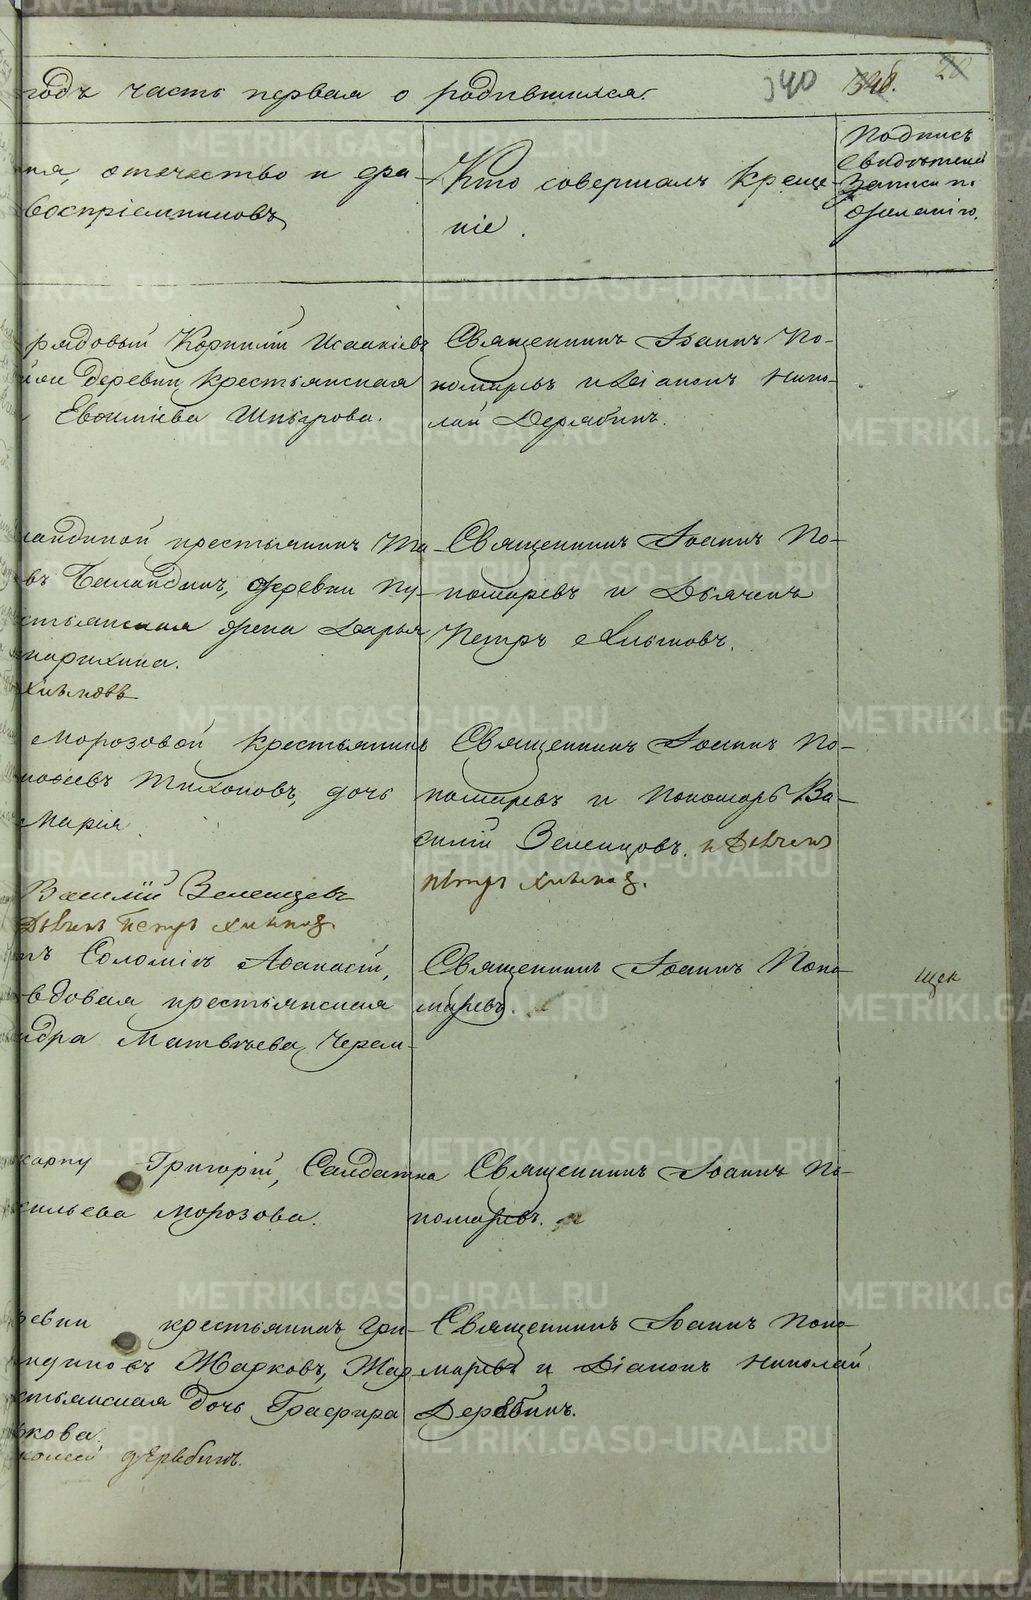 годъ часть первая о родившихся.
340
мя, отечество и фа-
воспріемниковъ
Кто совершалъ креще-
ніе.
Подпись
свидѣтелей
записи по
желанію.
рядовый Корнилій Исаакіевъ
деревни крестьянская
Евѳиміева
Священникъ Іоаннъ По-
номаревъ и Діаконъ Нико-
лай Дерябинъ.
крестьянинъ
въ Баландинъ, деревни
стьянская жена Дарья
Священникъ Іоаннъ По-
номаревъ и Дьячекъ
Петръ Хлыновъ.
Морозовой крестьянинъ
Тихоновъ, дочь
Марья
Василій Зеленцовъ
Дьячекъ Петръ
Священникъ Іоаннъ По-
номаревъ и Пономарь Ва-
силій Зеленцовъ. и Дьячекъ
Петръ
Соломінъ Аѳанасій,
вдовая крестьянская
ндра Матвѣева Черем-
Священникъ Іоаннъ Поно-
маревъ.
карпу Григорій, Салдатка
сильева Морозова.
Священникъ Іоаннъ По-
номаревъ.
ревни крестьянинъ Гри-
Жарковъ, Жар-
стьянская дочь Глафира
ркова.
колай Дерябинъ.
Священникъ Іоаннъ Поно-
маревъ и Діаконъ Николай
Дерябинъ.
METRIKI.GASO-URAL.RU